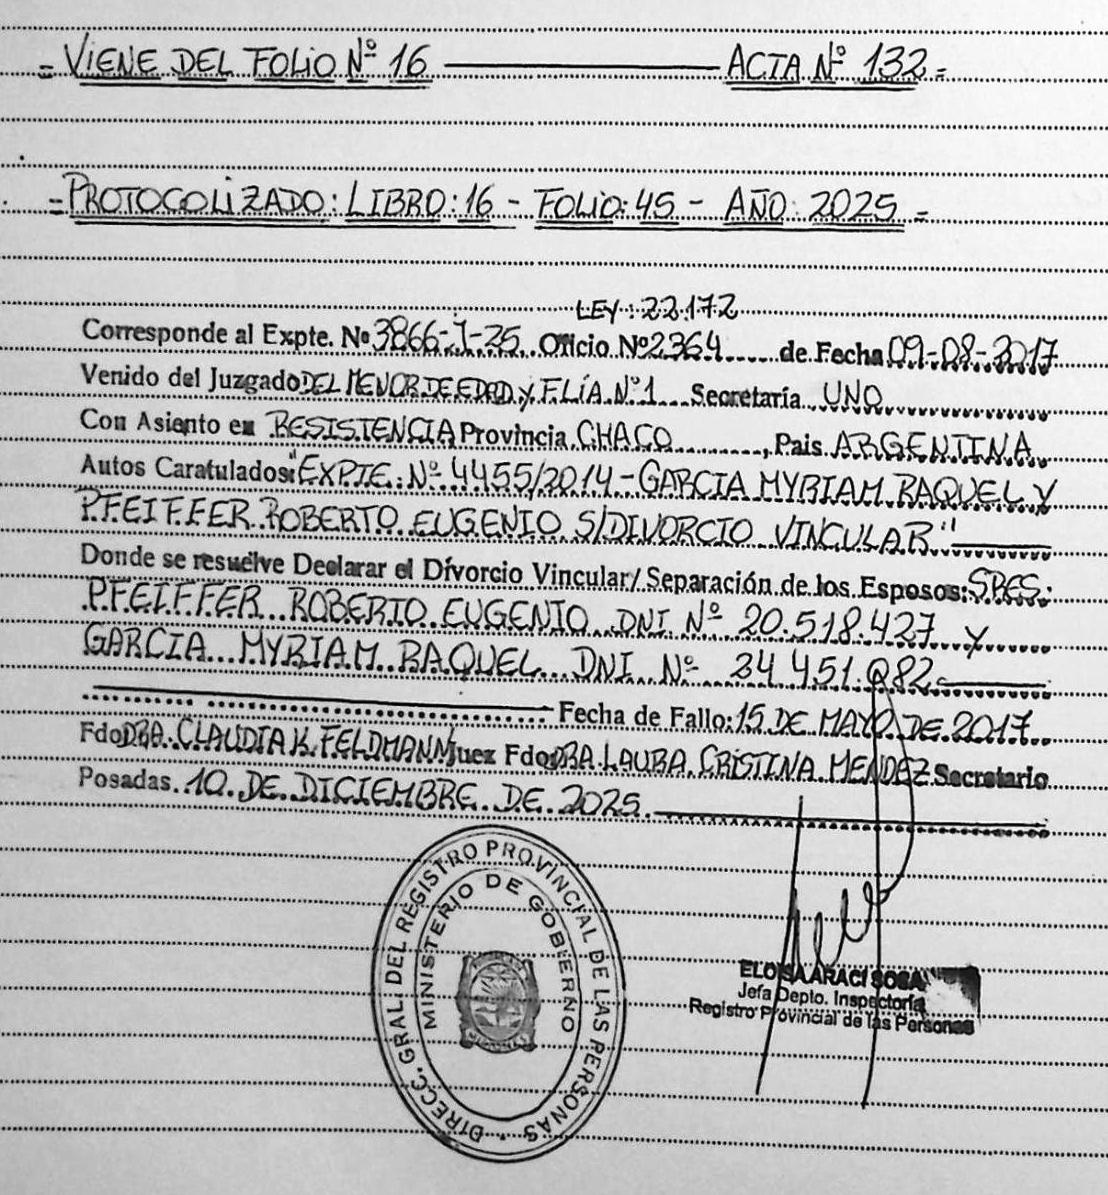 = VIENE DEL FOLIO Nº 16 ———— ACTA Nº 132 =
= PROTOCOLIZADO: LIBRO: 16 - FOLIO: 45 - AÑO: 2025 =
LEY: 22.172
Corresponde al Expte. Nº 3866-J-25 Oficio Nº 2364 de Fecha 09-08-2017
Venido del Juzgado DEL MENOR DE EDAD y FLÍA Nº 1 Secretaría UNO
Con Asiento en RESISTENCIA Provincia CHACO, Pais ARGENTINA
Autos Caratulados: "EXPTE. Nº 4455/2014 - GARCIA MYRIAM RAQUEL Y
PFEIFFER ROBERTO EUGENIO S/DIVORCIO VINCULAR"
Donde se resuelve Declarar el Divorcio Vincular/ Separación de los Esposos: SRES:
PFEIFFER ROBERTO EUGENIO DNI Nº 20.518.427 Y
GARCIA MYRIAM RAQUEL DNI Nº 24.451.082
Fecha de Fallo: 15 DE MAYO DE 2017
Fdo DRA. CLAUDIA K. FELDMANN Juez Fdo DRA. LAURA CRISTINA MENDEZ Secretario
Posadas. 10 DE DICIEMBRE DE 2025.
DIRECC. GRAL. DEL REGISTRO PROVINCIAL DE LAS PERSONAS
MINISTERIO DE GOBIERNO
ELOISA ARACI SOSA
Jefa Depto. Inspectoría
Registro Provincial de las Personas